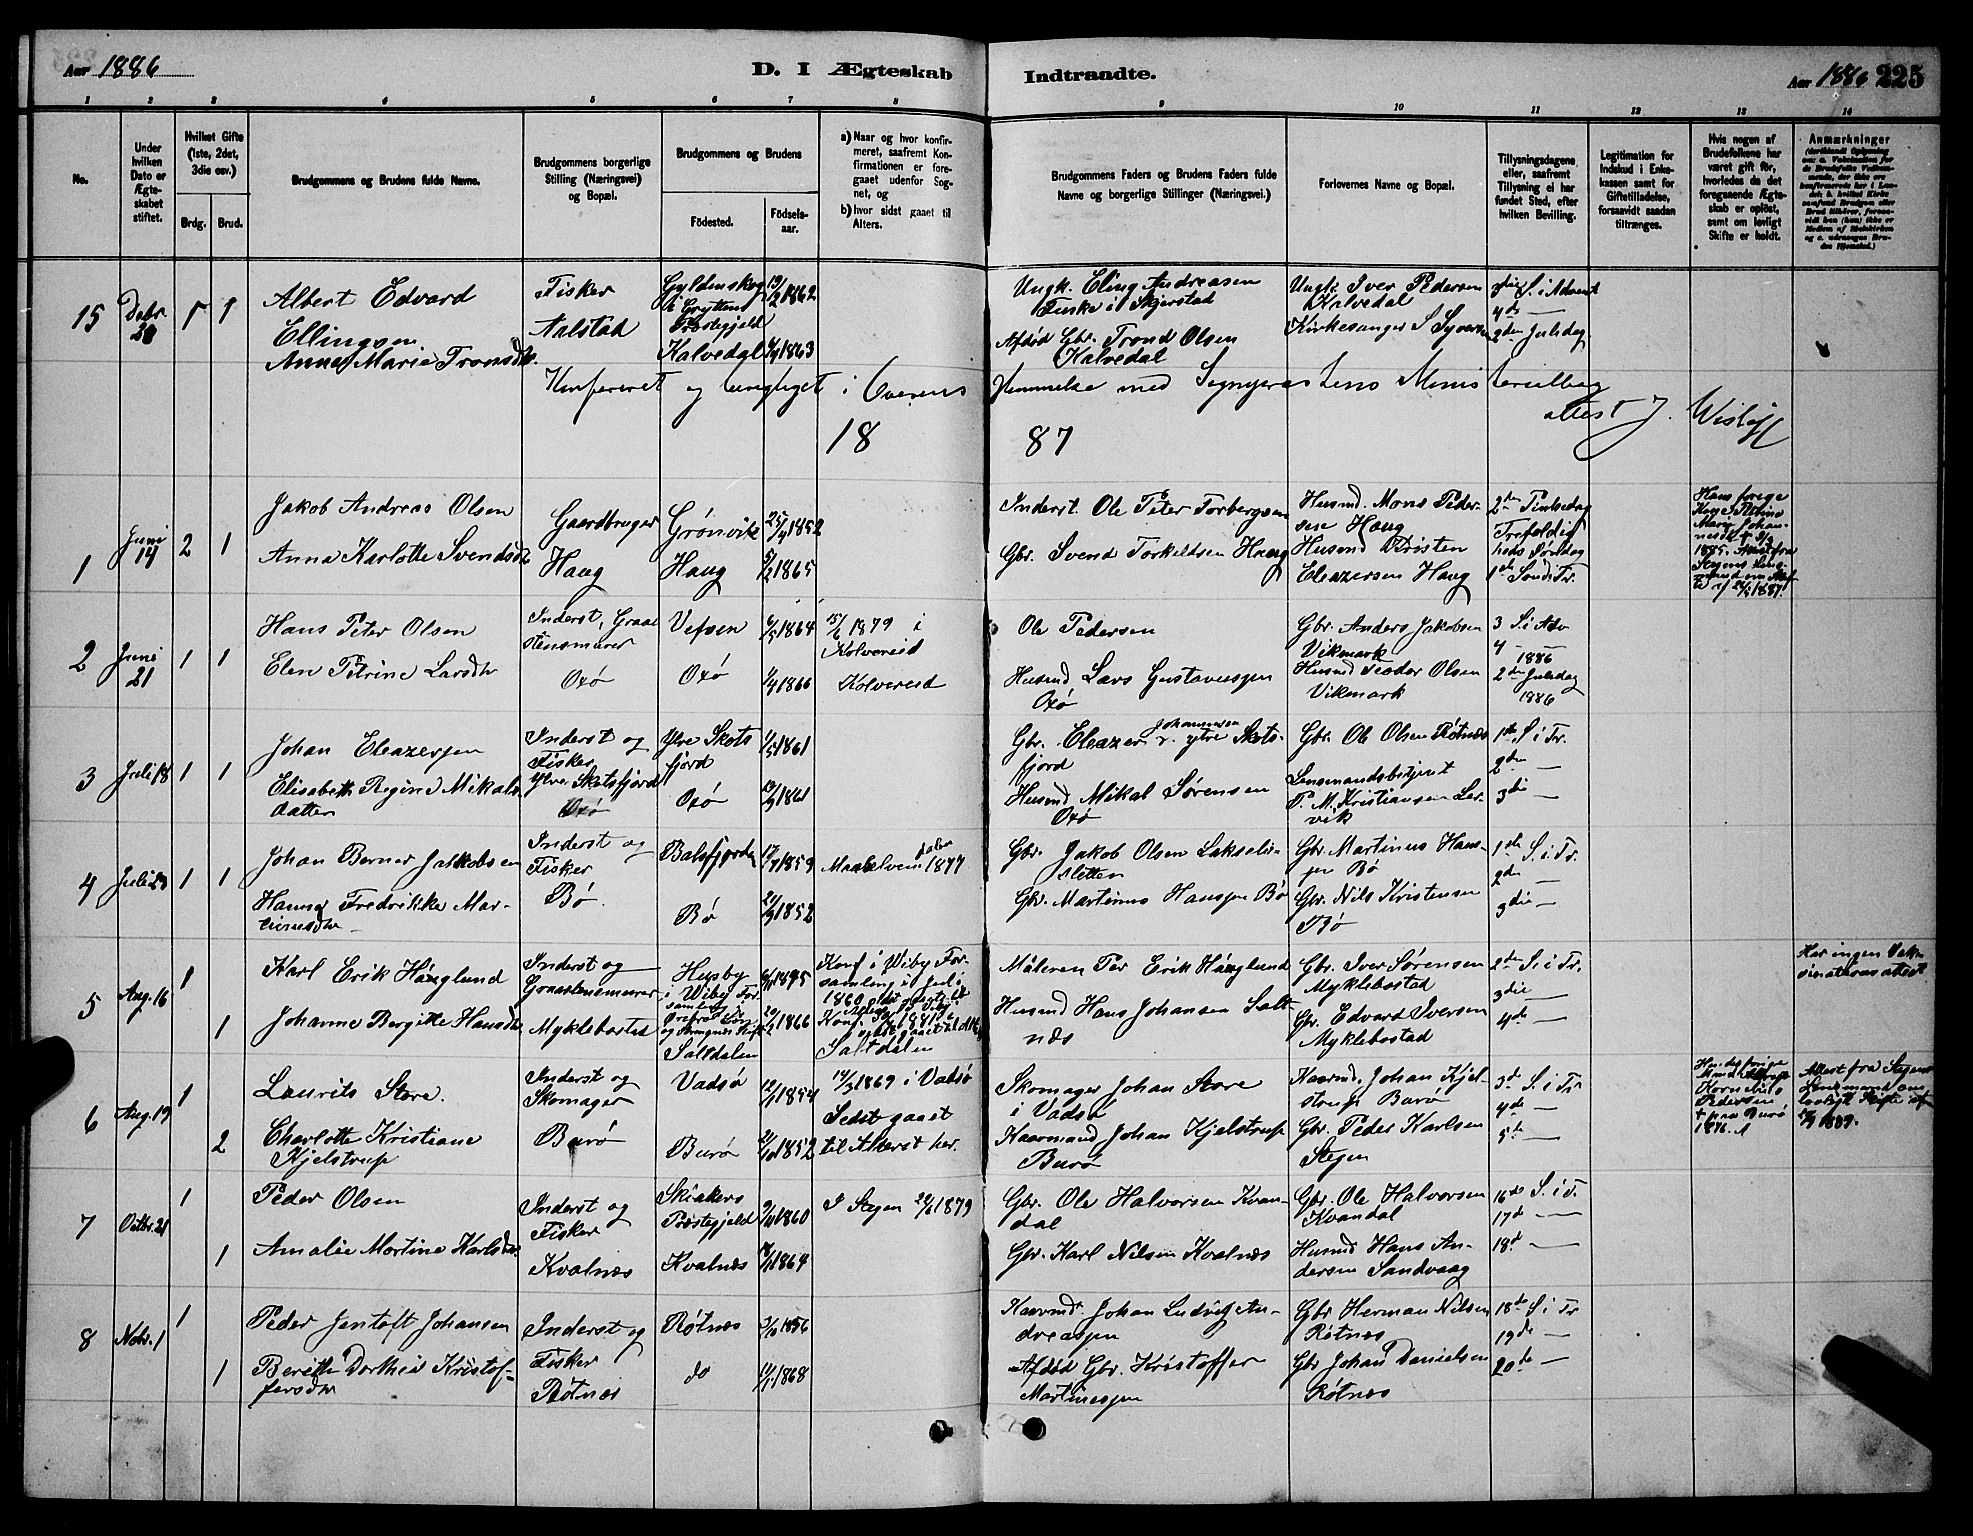 Aar 1886
D. I Ægteskab
Indtraadte.
Aar 1886
225
1 2 3 4 5 6 7 8 9 10 11 12 13 14
No.
Under
hvilken
Dato er
Ægte-
skabet
stiftet.
Hvilket Gifte
(1ste, 2det,
3die osv.)
Brdg.
Brud.
Brudgommens og Brudens fulde Navne.
Brudgommens borgerlige
Stilling (Næringsvei)
og Bopæl.
Brudgommens og Brudens
Födested.
Födsels-
aar.
a) Naar og hvor konfir-
meret, saafremt Kon-
firmationen er fore-
gaaet udenfor Sog-
net, og
b) hvor sidst gaaet til
Alters.
Brudgommens Faders og Brudens Faders fulde
Navne og borgerlige Stillinger (Næringsvei.)
Forlovernes Navne og Bopæl.
Tillysningsdagene
eller, saafremt
Tillysning ei har
fundet Sted, efter
hvilken Bevilling.
Legitimation for
Indskud i Enke-
kassen samt for
Giftetilladelse,
forsaavidt saadan
tiltrænges.
Hvis nogen af
Brudefolkene har
været gift för,
hvorledes da det
foregaaende Ægte-
skab er oplöst,
samt om lovligt
Skifte er holdt.
Anmærkninger
15
Debr.
28
1
1
Albert Edvard
Ellingsen
Anne Marie Tronsdtr.
Fisker
Aalstad
Gyldenskog
i Gryttens
Præstegjeld
Kalvedal
19/2 1862
1863
Ungk. Eling Andreasen
i Skjerstad
Afdød Gbr. Trond Olsen
Kalvedal
Ungk. Iver Pedersen
Kalvedal
Kirkesanger S Syvertsen
3die S. i Advent
4de —
2den Juledag
Konfereret og befundet i Overens
stemmelse med Sogneprestens Ministerialbog
attest J. Wisløff
18
87
1
Juni
14
2
1
Jakob Andreas Olsen
Anna Karlotte Svendsdtr
Gaardbruger
Haug
Grønvik
Haug
25/4 1852
5/2 1865
Inderst. Ole Peter Torbergsen
Gbr. Svend Torkeldsen Haug
Husmd. Mons Peder-
sen Haug
Husmd Kristen
Eleazersen Haug
2den Pintsedag
Trefoldig
heds Søndag
1ste Sønd i Tr.
Hans forrige
Kone
Marie Johan-
nesdtr +
1885. Attest fra
Stegens Lens-
mand om
1887.
2
Juni
21
1
1
Hans Peter Olsen
Elen Petrine Larsdtr
Inderst, Graa
stensmurer
Oxø
Vefsen
Oxø
6/5 1864
1/4 1866
15/6 1879 i
Kolvereid
Kolvereid
Ole Pedersen
Husmd Lars Gustavesen
Oxø
Gbr. Anders Jakobsen
Vikmark
Husmd Teodor Olsen
Vikmark
3 S. i Adv
4 —
1886
2den Juledag
1886
3
Juli 18
1
1
Johan Eleazersen
Elisabeth Regine Mikals
datter
Inderst og
Fisker
Ytre Skotsfjord
Oxø
Ytre Skots
fjord
Oxø
1/5 1861
1861
Gbr. Eleazer Johannesen ytre Skots-
fjord
Husmd. Mikal Sørensen
Oxø
Gbr. Ole Olsen Røtnes
Lensmandsbetjent
P. M. Kristiansen Ler-
vik
1ste S. i Tr.
2den —
3die —
4
1
1
Johan Berner Jakobsen
Hanna Fredrikke Mar-
tinusdtr
Inderst og
Fisker
Bø.
Balsfjorden
Bø
17/7 1859
21/9 1852
Maalselven 1877
Gbr. Jakob Olsen Lakseli-
sletten
Gbr. Martinus Hansen Bø
Gbr. Martinus Han-
sen Bø
Gbr. Nils Kristensen
Bø
1ste S. i Tr.
2de —
3die —
5
Aug. 16
1
1
Karl Erik Häglund
Johanne Bergitte Hansdtr
Inderst og
Graastensmurer
Myklebostad
Husby
i Wiby For
samling
Saltdalen
20/2 1866
Konf i Wiby For-
samling
1860
Saltdalen
Måleren Per Erik Häglund
Husmd Hans Johansen Salt
næs
Gbr. Iver Sørensen
Myklebostad
Gbr. Edvard Iversen
Myklebostad
2den S. i Tr.
3die —
4de —
Har ingen Vak-
sinationsattest
6
Aug. 19
1
2
Laurits Store.
Charlotte Kristiane
Kjelstrup
Inderst og
Skomager
Burø
Vadsø
Burø
12/1 1854
21/10 1852
14/3 1869 i Vadsø
Sidst gaaet
til Alterst her.
Skomager Johan Store
i Vadsø
Kaarmand Johan Kjelstrup
Burø
Kaarmd. Johan Kjel-
strup Burø
Gbr. Peder Karlsen
Stegen
3de S. i Tr
4de —
5te —
Hendes forrige
Mand
Kornelius
Pedersen
+ paa Burø
1876.
Attest fra Stegens
Lensmand om
lovligt Skifte af
7
Octbr. 21
1
1
Peder Olsen
Amalie Martine Karlsdtr
Inderst og
Fisker
Kvalnæs
Skiakers
Præstegjeld
Kvalnæs
1860
1864
I Stegen 22/6 1879
Gbr. Ole Halvorsen Kvan-
dal
Gbr. Karl Nilsen Kvalnæs
Gbr. Ole Halvorsen
Kvandal
Husmd Hans An-
dersen Sandvaag
16de S. i T.
17de —
18de —
8
Nobr. 1
1
1
Peder Jentoft Johansen
Berette Dorthea Kristof-
fersdtr
Inderst og
Fisker
Røtnæs
Røtnæs
do
1856
1868
Kaarmd. Johan Ludvig An-
dreassen
Afdød Gbr. Kristoffer
Martinessen
Gbr Herman Nilsen
Røtnæs
Gbr Johan Danielsen
Røtnæs
18de S. i Tr
19de —
20de —